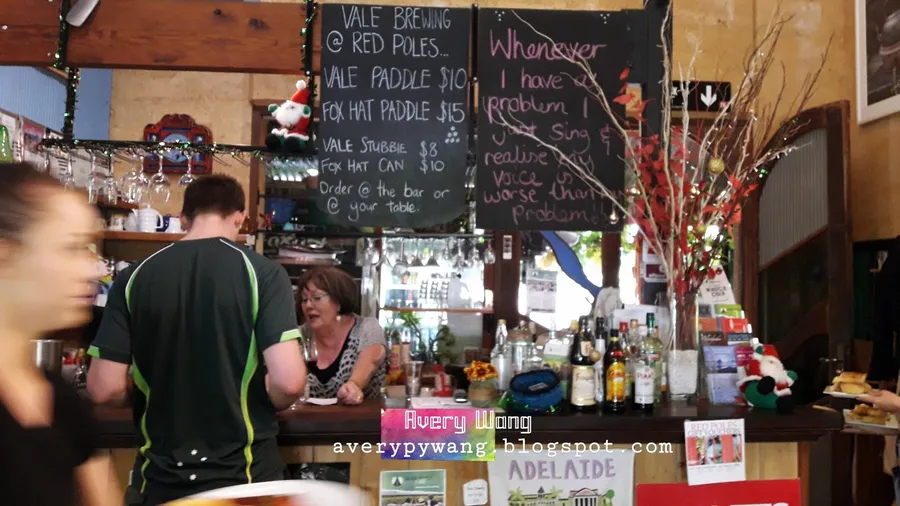 VALE BREWING
@ RED POLES...
VALE PADDLE $10
FOX HAT PADDLE $15
VALE STUBBIE $8
FOX HAT CAN $10
Order @ the bar or
@ your table.
Whenever
I have a
problem I
just sing &
realise my
voice is
worse than
problem
Avery Wang
averypywang.blogspot.com
ADELAIDE
RED POLES